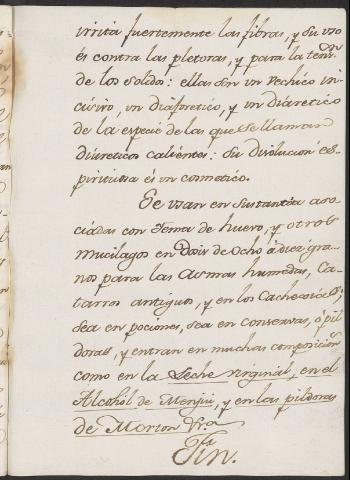 irrita fuertemente las fibras, y su uso
és contra las pletoras, y para la tencion
de los solidos: ellas son un vechico in
cisivo, un diaforetico, y un diuretico
de la especie de las que se llaman
diureticos calientes: su disolucion es-
piritussa és un cosmetico.
Se usan en sustantia aso-
ciadas con Yema de huevo, y otros
mucilagos en Dosis de ocho à diez gra-
nos para las Asmas humedas, Ca-
tarros antiguos, y en los
sea en pociones, sea en conservas, ó pil
doras, y entran en muchas composicion.s
como en la Leche virginal, en el
Alcohól de Menjui, y en las pildoras
de Morton
Fin.